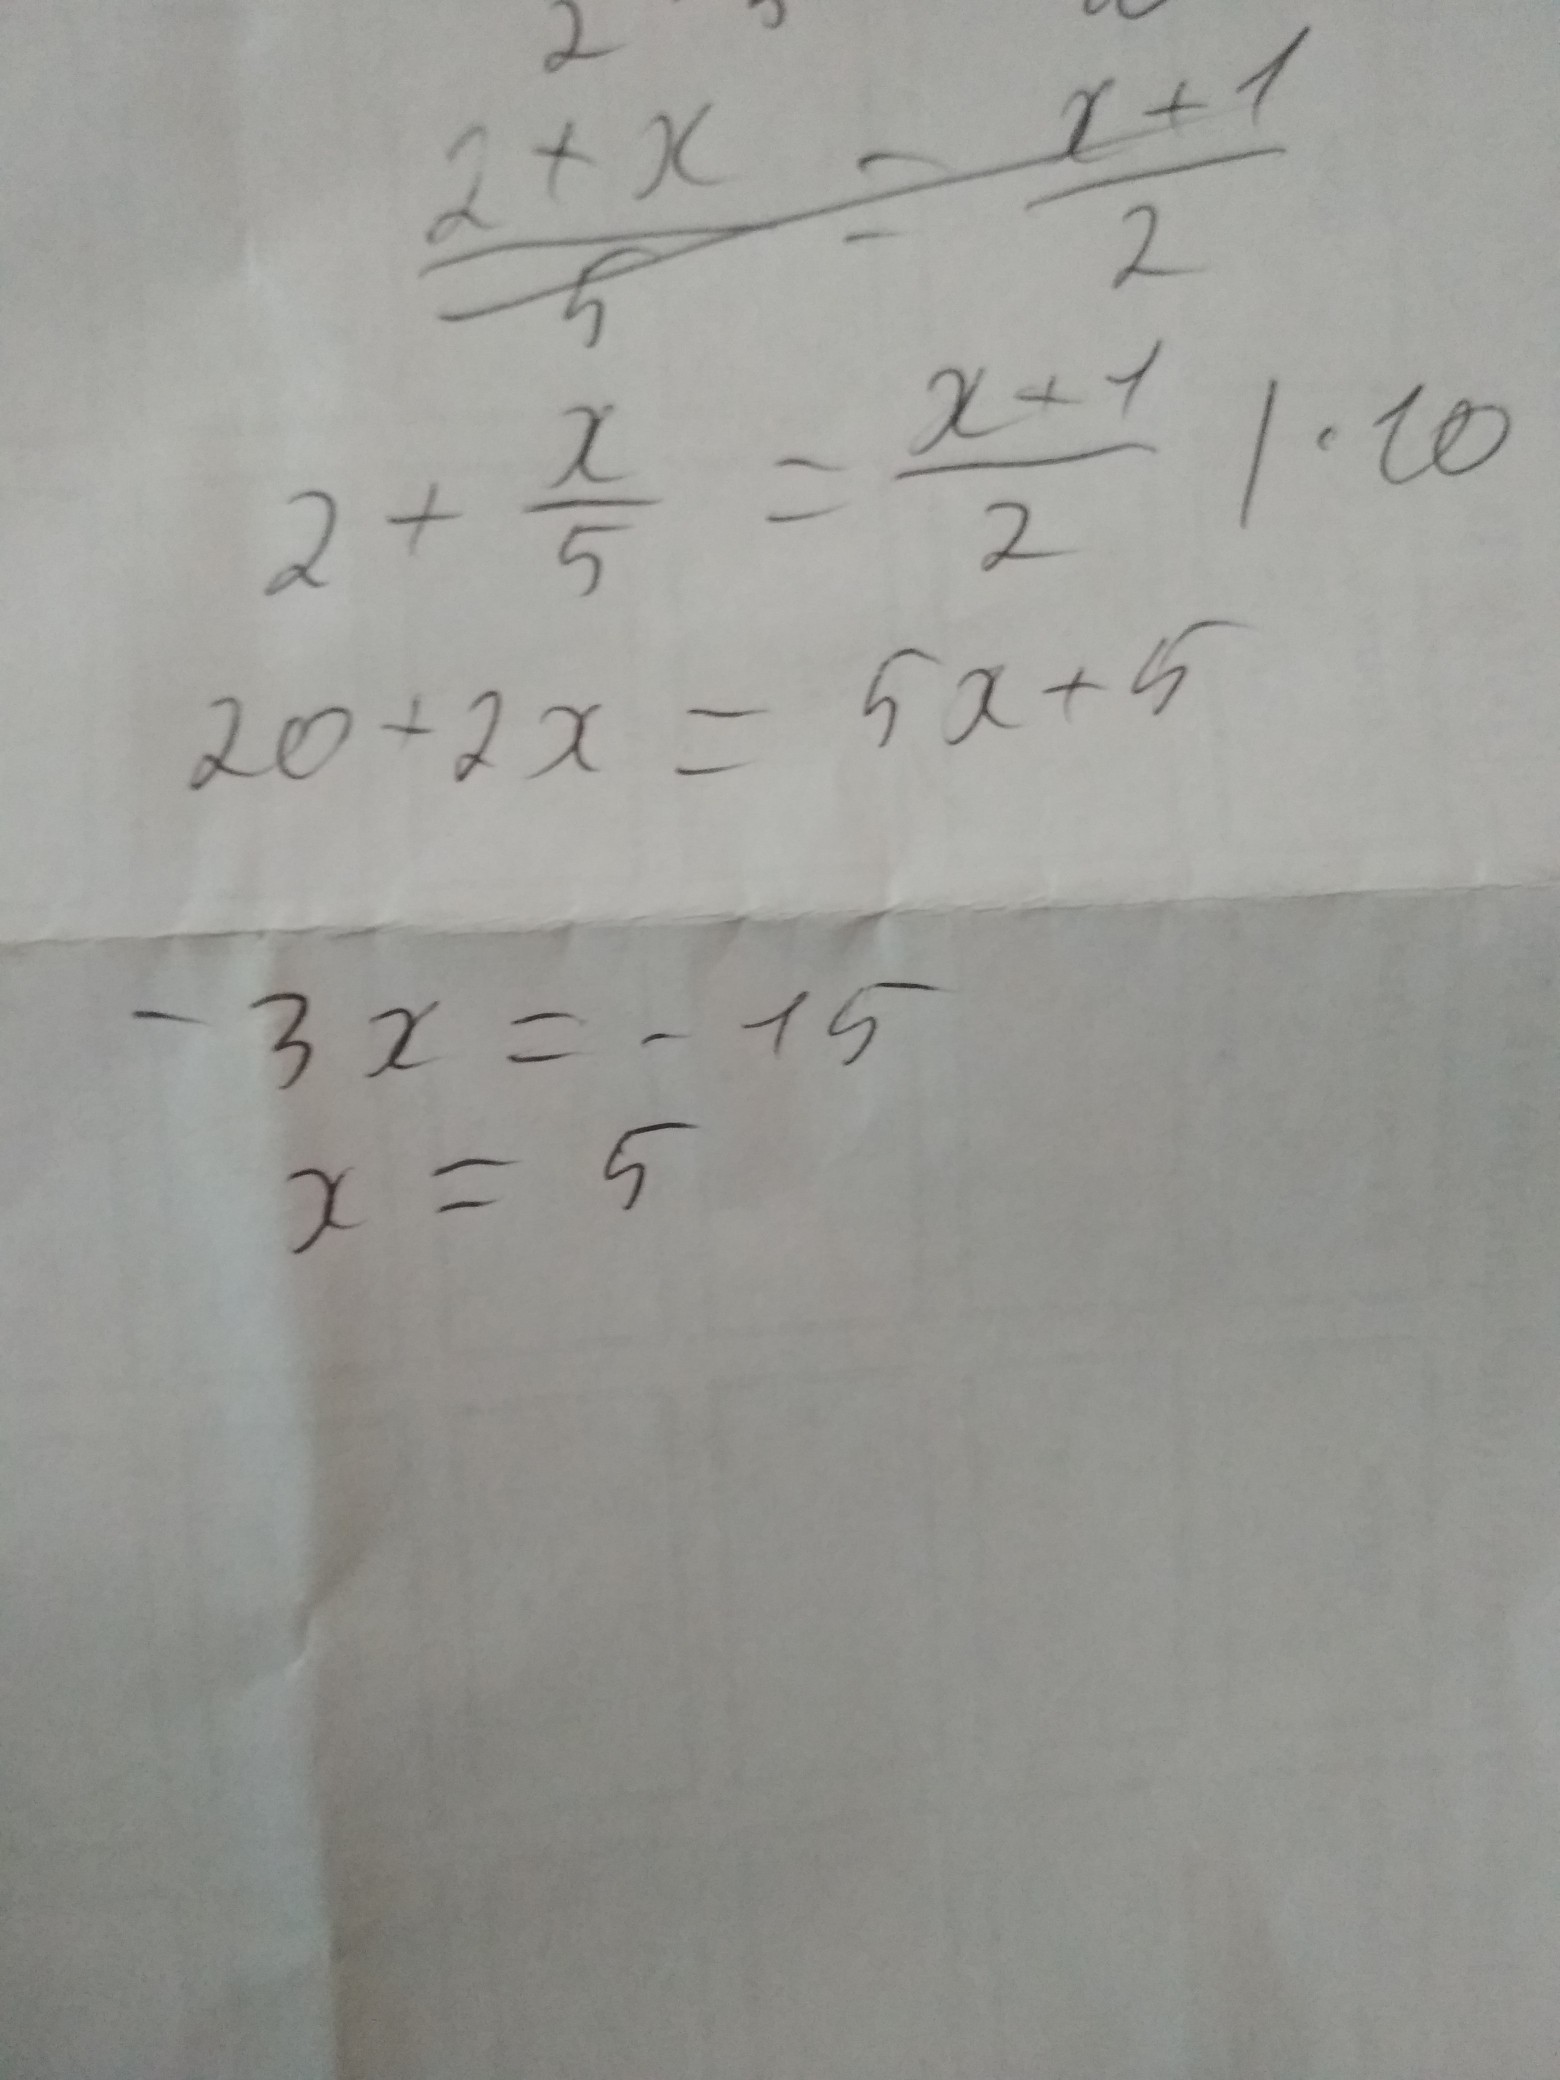 2 + x / 5 = x + 1 / 2
2 + x/5 = x+1/2 | · 10
20 + 2x = 5x + 5
- 3x = - 15
x = 5